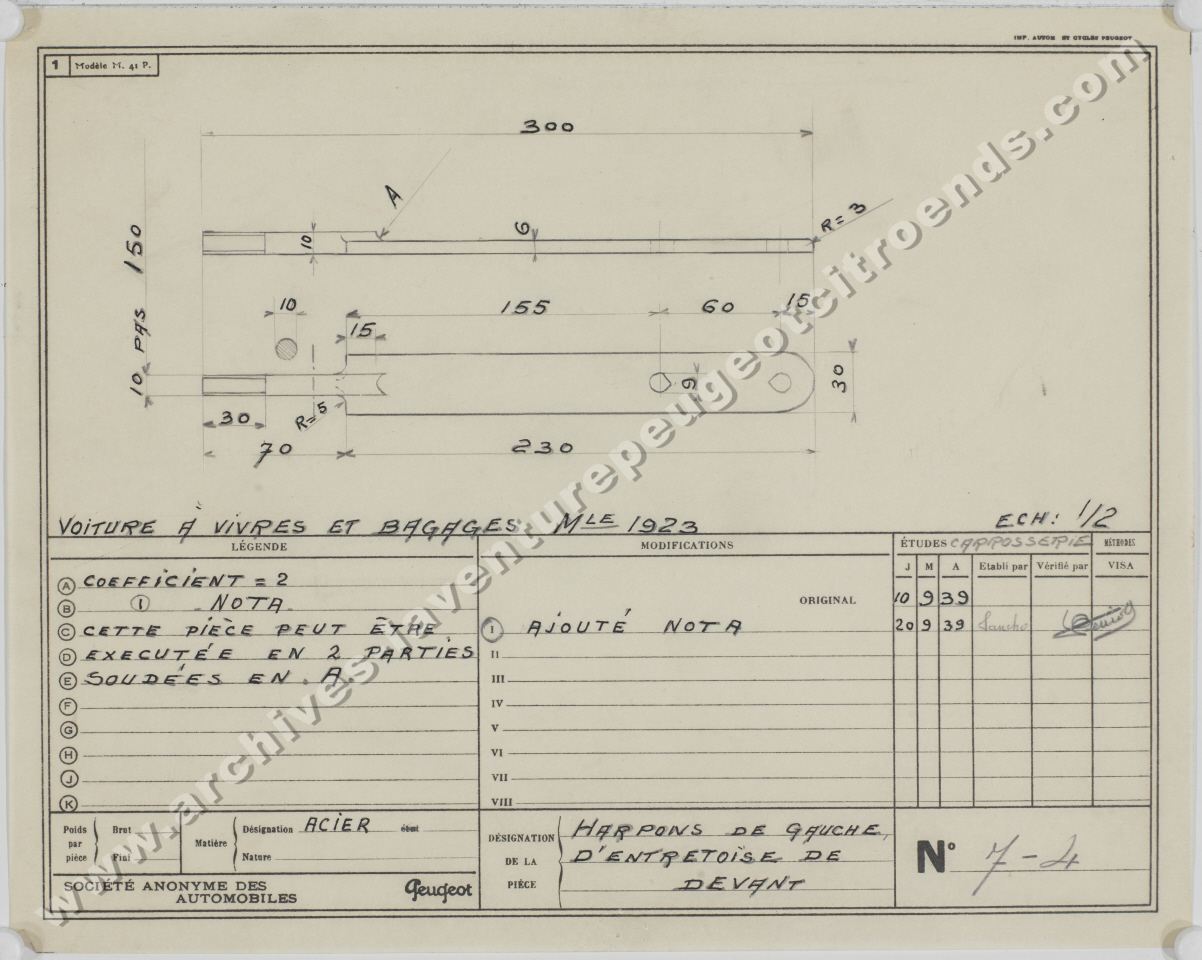 IMP. AUTOM ET CYCLES PEUGEOT
1 Modèle M. 41 P.
300
A
10
6
R=3
10 PAS 150
10
155
60
15
15
9
30
R=5
30
70
230
VOITURE A VIVRES ET BAGAGES MLE 1923
ECH: 1/2
LÉGENDE
MODIFICATIONS
ÉTUDES CARROSSERIE
MÉTHODES
J M A Etabli par Vérifié par VISA
A COEFFICIENT = 2
ORIGINAL 10 9 39
B 1 NOTA.
C CETTE PIÈCE PEUT ÊTRE
I AJOUTÉ NOTA 20 9 39 Sancho
D EXECUTÉE EN 2 PARTIES
II
E SOUDÉES EN A.
III
F
IV
G
V
H
VI
J
VII
K
VIII
Poids par pièce
Brut
Fini
Matière
Désignation ACIER
Nature
DÉSIGNATION DE LA PIÈCE
HARPONS DE GAUCHE
D'ENTRETOISE DE
DEVANT
N° 7-4
SOCIÉTÉ ANONYME DES
AUTOMOBILES
Peugeot
www.archives.laventurepeugeotcitroends.com